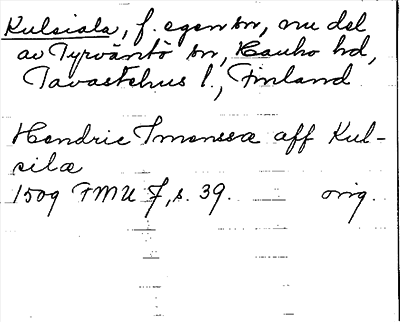 Kulsiala, f. egen sn, nu del
av Tyrväntö sn, Hauho hd,
Tavastehus l., Finland
Hendric Imonssæ aff Kul-
sila
1509 FMU 7, s. 39. orig.